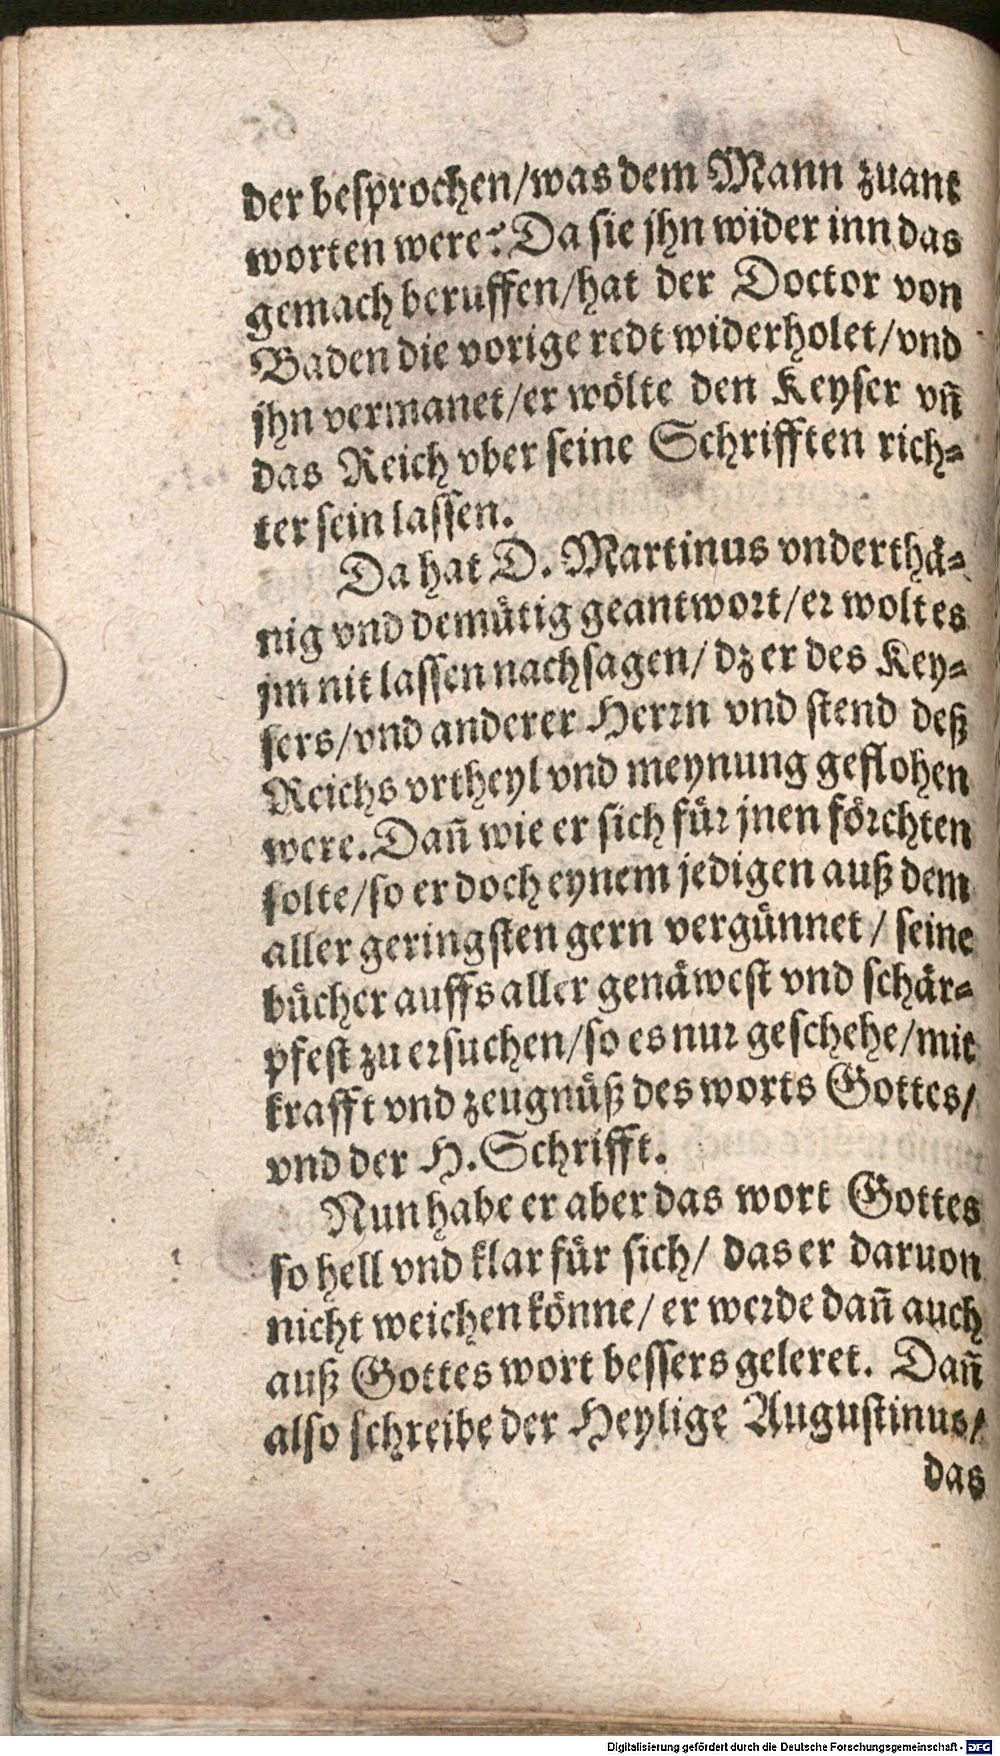 der besprochen/was dem Mann zuant
worten were? Da sie jhn wider inn das
gemach beruffen/hat der Doctor von
Baden die vorige redt widerholet/vnd
jhn vermanet/er wölte den Keyser vñ
das Reich vber seine Schrifften rich-
ter sein lassen.
Da hat D. Martinus vnderthä-
nig vnd demütig geantwort/er wolt es
jm nit lassen nachsagen/ dz er des Key-
sers/vnd anderer Herrn vnd stend deß
Reichs vrtheyl vnd meynung geflohen
were. Dañ wie er sich für jnen förchten
solte/so er doch eynem jedigen auß dem
aller geringsten gern vergünnet/ seine
bücher auffs aller genäwest vnd schär-
pfest zu ersuchen/so es nur geschehe/mit
krafft vnd zeugnüß des worts Gottes/
vnd der H. Schrifft.
Nun habe er aber das wort Gottes
so hell vnd klar für sich/ das er daruon
nicht weichen könne/ er werde dañ auch
auß Gottes wort bessers geleret. Dañ
also schreibe der Heylige Augustinus/
das
Digitalisierung gefördert durch die Deutsche Forschungsgemeinschaft - DFG